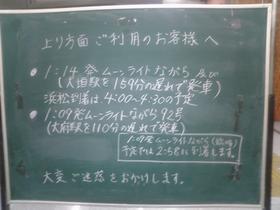 上り方面ご利用のお客様へ
・1:14発ムーンライトながら及び
(大垣駅を159分の遅れで発車)
浜松到着は4:00〜4:30予定
・1:09発ムーンライトながら92号
(大府駅を110分の遅れで発車)
1:09発ムーンライトながら(臨時)
予定では2:58に到着します。
大変ご迷惑をおかけします。